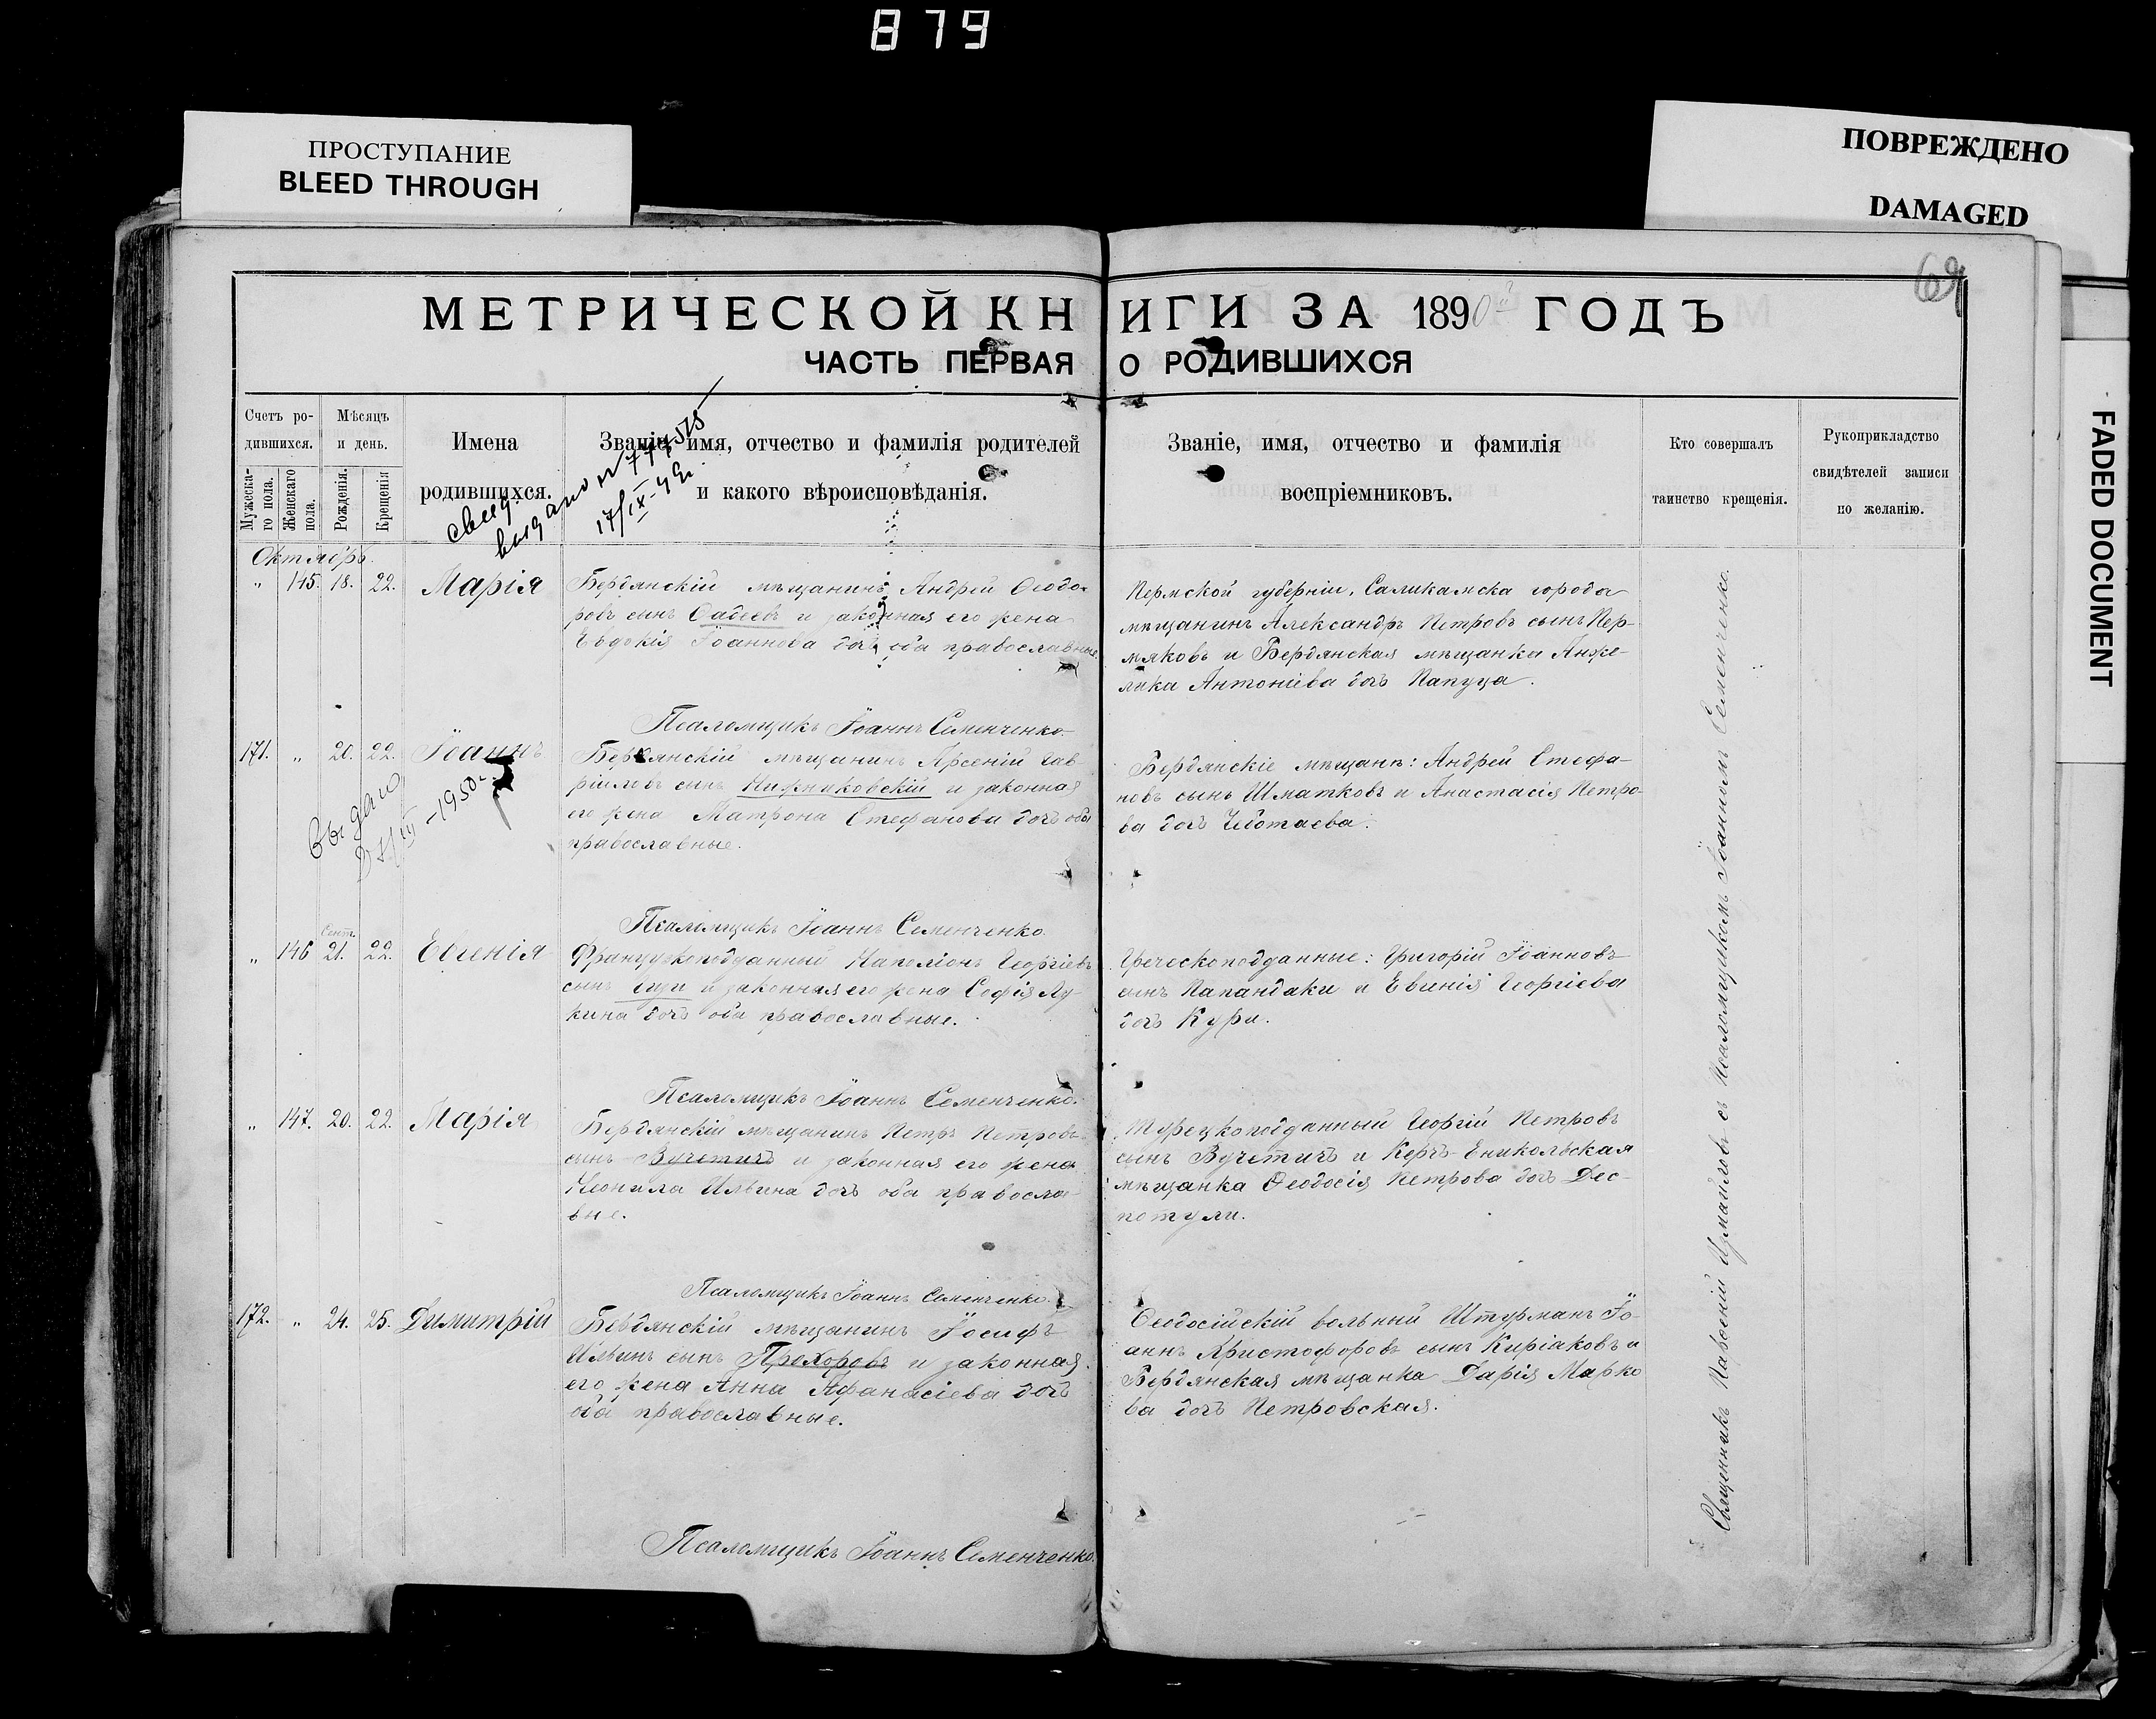 879
ПРОСТУПАНИЕ
BLEED THROUGH
ПОВРЕЖДЕНО
DAMAGED
FADED DOCUMENT
69
МЕТРИЧЕСКОЙ КНИГИ ЗА 1890й ГОДЪ
ЧАСТЬ ПЕРВАЯ О РОДИВШИХСЯ
Счетъ ро-
дившихся.
Мужеска-
го пола.
Женскаго
пола.
Мѣсяцъ
и день.
Рожденія.
Крещенія
Имена
родившихся.
Званіе, имя, отчество и фамилія родителей
и какого вѣроисповѣданія.
Званіе, имя, отчество и фамилія
воспріемниковъ.
Кто совершалъ
таинство крещенія.
Рукоприкладство
свидѣтелей записи
по желанію.
свид.
выдано №
17/IX-
Октябрь.
" 145. 18. 22. Марія
Бердянскій мѣщанинъ Андрей Ѳеодо-
ровъ сынъ Фадеевъ и законная его жена
Евдокія Іоаннова дочь оба православные.
Пермской губерніи, Саликамска города
мѣщанинъ Александръ Петровъ сынъ Пер-
мяковъ и Бердянская мѣщанка Анже-
лика Антоніева дочь Папуца.
Псаломщикъ Іоаннъ Семенченко.
171. " 20. 22. Іоаннъ
Выдано
-1950г.
Бердянскій мѣщанинъ Арсеній Гав-
ріиловъ сынъ Нижниковскій и законная
его жена Матрона Стефанова дочь оба
православные.
Бердянскіе мѣщане: Андрей Стефа-
новъ сынъ Шматковъ и Анастасія Петро-
ва дочь Чеботаева.
Псаломщикъ Іоаннъ Семенченко.
" 146 Сент. 21. 22. Евгенія
Французскоподданный Наполіонъ Георгіевъ
сынъ и законная его жена Софія Лу-
кина дочь оба православные.
Греческоподданные: Григорій Іоанновъ
сынъ Папандаки и Евгенія Георгіева
дочь Кури.
Псаломщикъ Іоаннъ Семенченко.
" 147. 20. 22. Марія
Бердянскій мѣщанинъ Петръ Петровъ
сынъ Вучетичъ и законная его жена
Неонила Ильина дочь оба православ-
вные.
Турецкоподданный Георгій Петровъ
сынъ Вучетичъ и Керчь-Еникольская
мѣщанка Ѳеодосія Петрова дочь Дес-
потули.
Псаломщикъ Іоаннъ Семенченко.
172. " 24. 25. Димитрій
Бердянскій мѣщанинъ Іосифъ
Ильинъ сынъ Прохоровъ и законная
его жена Анна Афанасіева дочь
оба православные.
Ѳеодосійскій вольный Штурманъ Іо-
аннъ Христофоровъ сынъ Киріаковъ и
Бердянская мѣщанка Дарія Марко
ва дочь Петровская.
Псаломщикъ Іоаннъ Семенченко.
Священникъ Парѳеній Измаиловъ съ Псаломщикомъ Іоанномъ Семенченко.